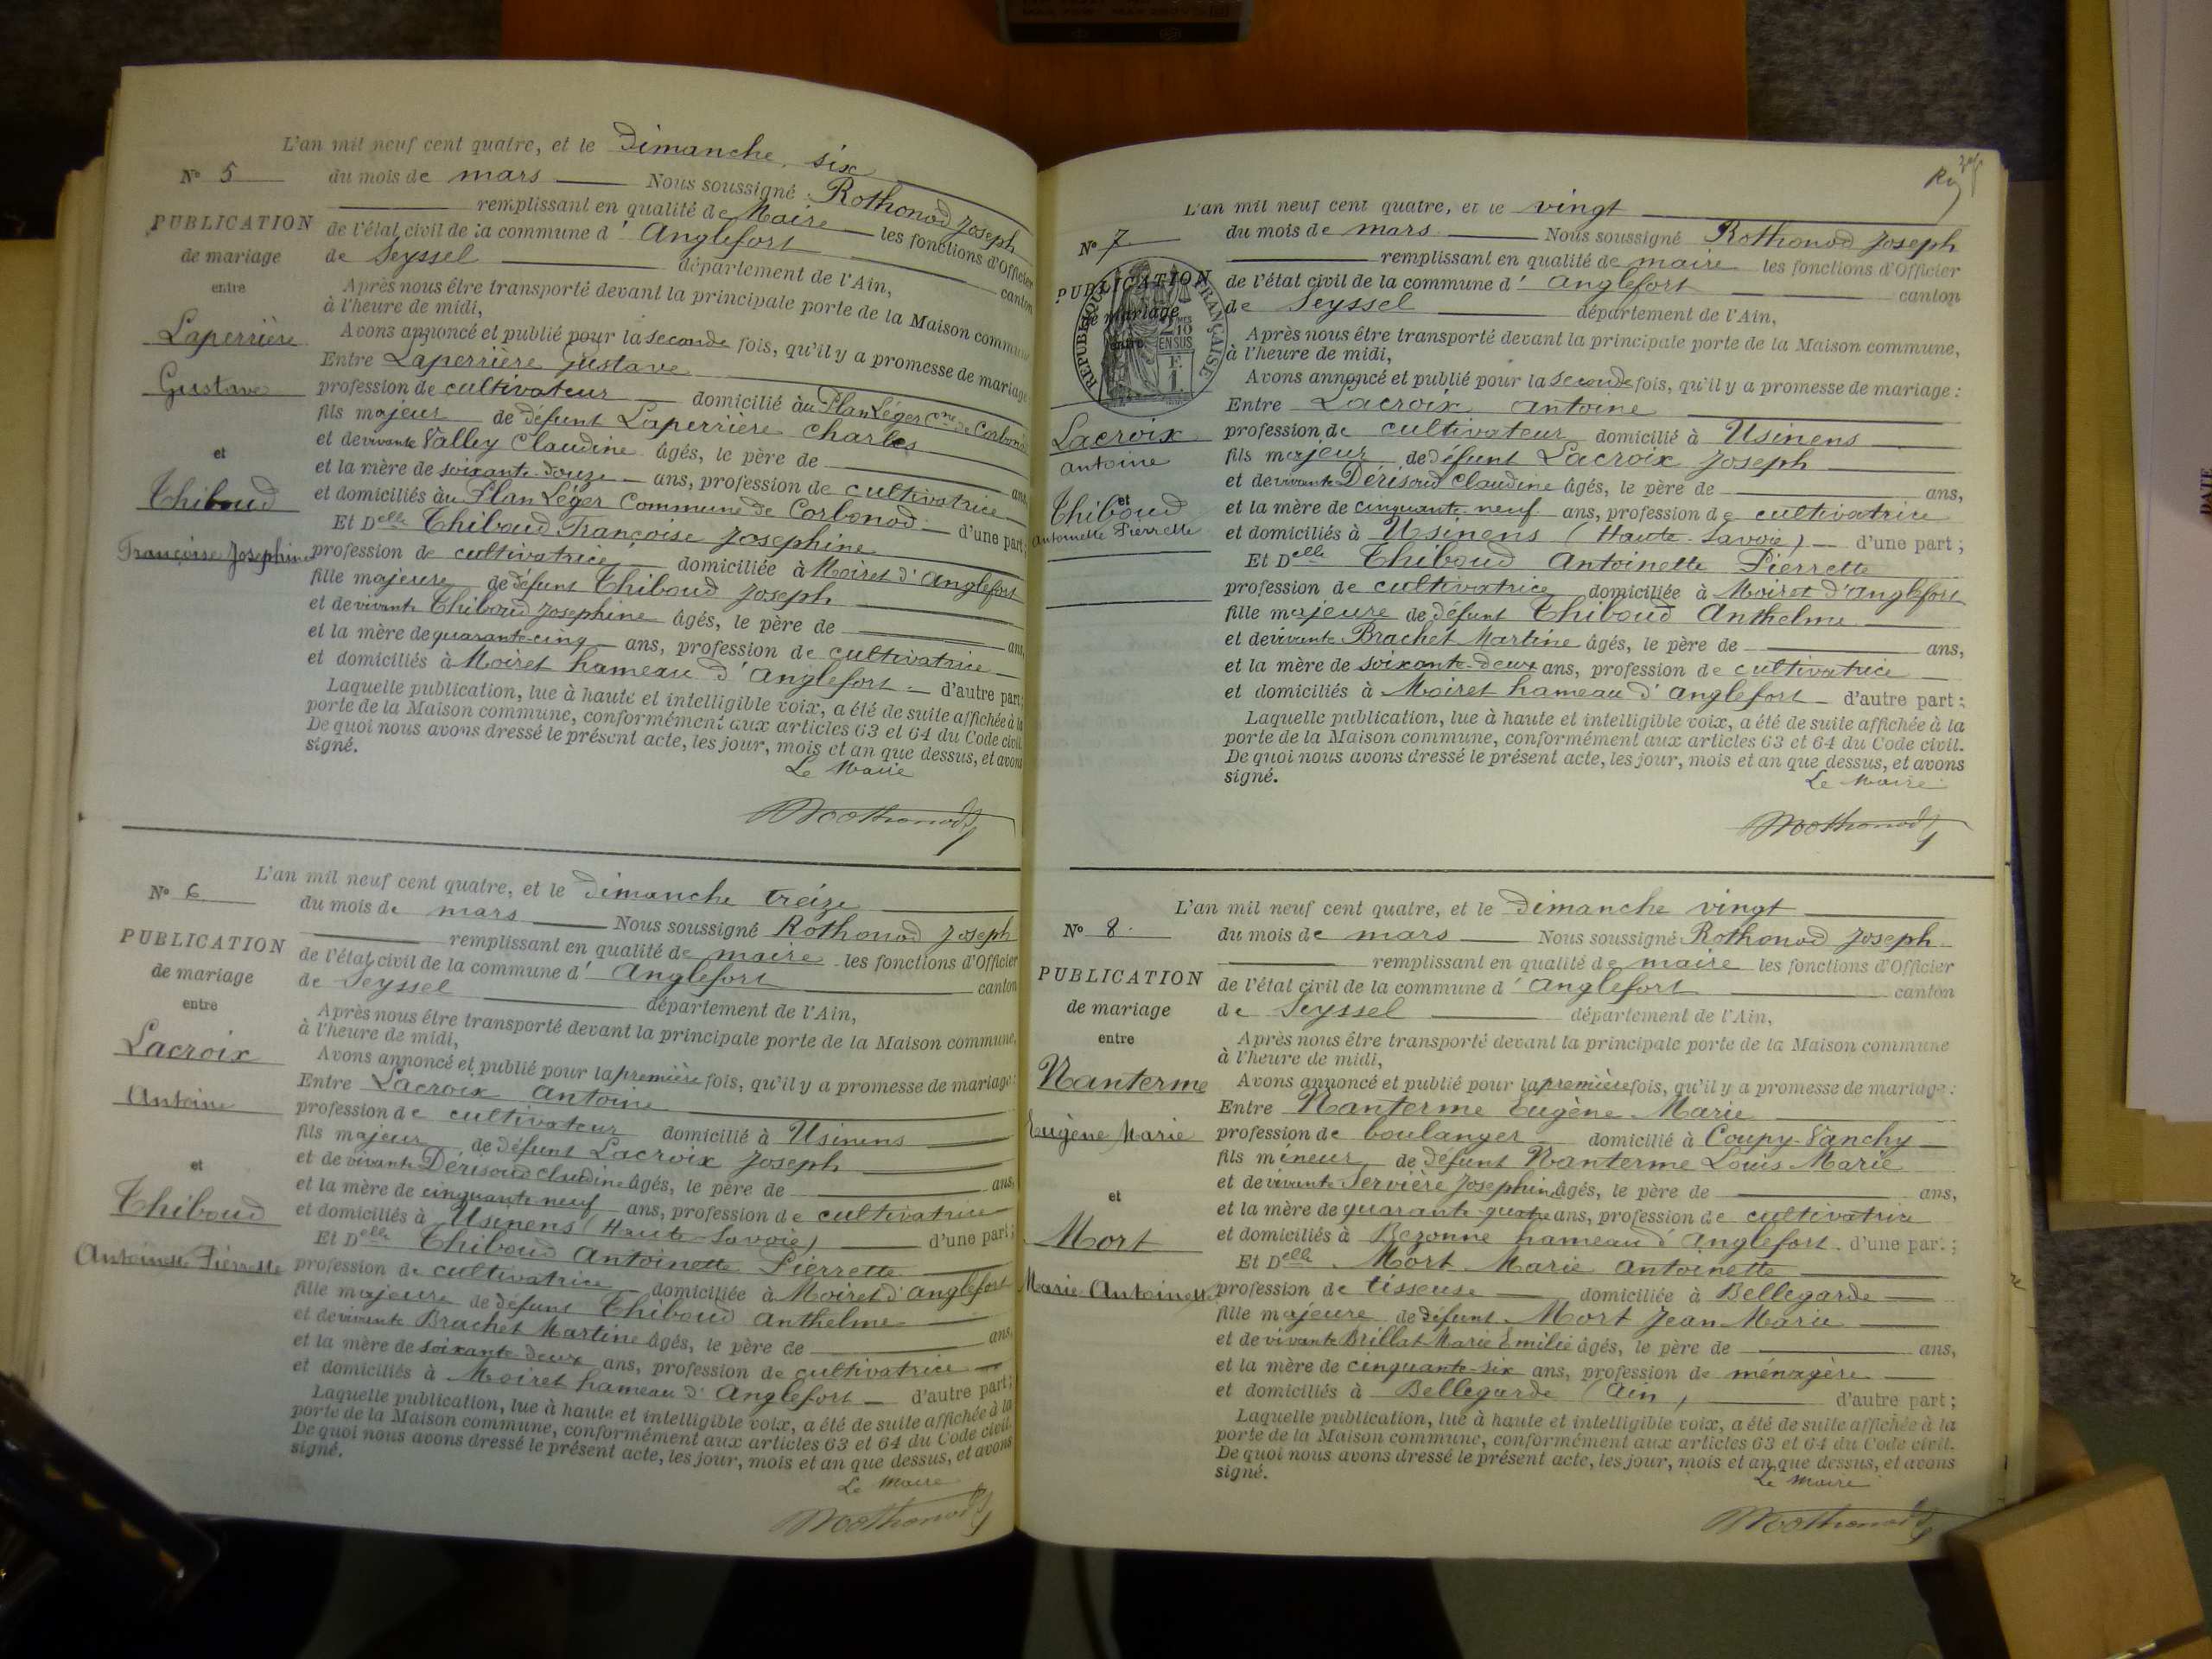 L'an mil neuf cent quatre, et le Dimanche, six
N° 5
du mois de mars Nous soussigné Rothonod Joseph
remplissant en qualité de Maire les fonctions d'Officier
PUBLICATION
de l'état civil de la commune d' Anglefort canton
de mariage
de Seyssel département de l'Ain,
entre
Après nous être transporté devant la principale porte de la Maison commune
à l'heure de midi,
Laperrière
Avons annoncé et publié pour la seconde fois, qu'il y a promesse de mariage
Entre Laperrière Gustave
Gustave
profession de cultivateur domicilié au Plan Léger Cne de Corbonod
fils majeur de défunt Laperrière Charles
et de vivante Valley Claudine âgés, le père de ans,
et
et la mère de soixante-douze ans, profession de cultivatrice
Thiboud
et domiciliés au Plan Léger Commune de Corbonod d'une part;
Et Delle Thiboud Françoise Josephine
Françoise Josephine
profession de cultivatrice domiciliée à Moiret d'Anglefort
fille majeure de défunt Thiboud Joseph
et de vivante Thiboud Josephine âgés, le père de ans,
et la mère de quarante-cinq ans, profession de cultivatrice
et domiciliés à Moiret hameau d'Anglefort d'autre part;
Laquelle publication, lue à haute et intelligible voix, a été de suite affichée à la
porte de la Maison commune, conformément aux articles 63 et 64 du Code civil.
De quoi nous avons dressé le présent acte, les jour, mois et an que dessus, et avons
signé.
Le Maire
Rothonod
L'an mil neuf cent quatre, et le Dimanche treize
N° 6
du mois de mars Nous soussigné Rothonod Joseph
remplissant en qualité de maire les fonctions d'Officier
PUBLICATION
de l'état civil de la commune d' Anglefort canton
de mariage
de Seyssel département de l'Ain,
entre
Après nous être transporté devant la principale porte de la Maison commune,
à l'heure de midi,
Lacroix
Avons annoncé et publié pour la première fois, qu'il y a promesse de mariage:
Entre Lacroix Antoine
Antoine
profession de cultivateur domicilié à Usinens
fils majeur de défunt Lacroix Joseph
et de vivante Dérisoud Cludine âgés, le père de ans,
et
et la mère de cinquante neuf ans, profession de cultivatrice
Thiboud
et domiciliés à Usinens (Haute-Savoie) d'une part;
Et Delle Thiboud Antoinette Pierrette
Antoinette Pierrette
profession de cultivatrice domiciliée à Moiret d'Anglefort
fille majeure de défunt Thiboud Anthelme
et de vivante Brachet Martine âgés, le père de ans,
et la mère de soixante-deux ans, profession de cultivatrice
et domiciliés à Moiret hameau d'Anglefort d'autre part;
Laquelle publication, lue à haute et intelligible voix, a été de suite affichée à la
porte de la Maison commune, conformément aux articles 63 et 64 du Code civil.
De quoi nous avons dressé le présent acte, les jour, mois et an que dessus, et avons
signé.
Le Maire
Rothonod
L'an mil neuf cent quatre, et le vingt
N° 7
du mois de mars Nous soussigné Rothonod Joseph
remplissant en qualité de maire les fonctions d'Officier
PUBLICATION
de l'état civil de la commune d' Anglefort canton
de mariage
de Seyssel département de l'Ain,
RÉPUBLIQUE FRANÇAISE
2/10 EN SUS
F. 1
entre
Après nous être transporté devant la principale porte de la Maison commune,
à l'heure de midi,
Avons annoncé et publié pour la seconde fois, qu'il y a promesse de mariage:
Entre Lacroix Antoine
Lacroix
profession de cultivateur domicilié à Usinens
Antoine
fils majeur de défunt Lacroix Joseph
et de vivante Dérisoud Claudine âgés, le père de ans,
et
Thiboud
et la mère de cinquante-neuf ans, profession de cultivatrice
Antoinette Pierrette
et domiciliés à Usinens (Haute-Savoie) d'une part;
Et Delle Thiboud Antoinette Pierrette
profession de cultivatrice domiciliée à Moiret d'Anglefort
fille majeure de défunt Thiboud Anthelme
et de vivante Brachet Martine âgés, le père de ans,
et la mère de soixante-deux ans, profession de cultivatrice
et domiciliés à Moiret hameau d'Anglefort d'autre part;
Laquelle publication, lue à haute et intelligible voix, a été de suite affichée à la
porte de la Maison commune, conformément aux articles 63 et 64 du Code civil.
De quoi nous avons dressé le présent acte, les jour, mois et an que dessus, et avons
signé.
Le Maire
Rothonod
L'an mil neuf cent quatre, et le Dimanche vingt
N° 8
du mois de mars Nous soussigné Rothonod Joseph
remplissant en qualité de maire les fonctions d'Officier
PUBLICATION
de l'état civil de la commune d' Anglefort canton
de mariage
de Seyssel département de l'Ain,
entre
Après nous être transporté devant la principale porte de la Maison commune
à l'heure de midi,
Nanterme
Avons annoncé et publié pour la première fois, qu'il y a promesse de mariage:
Entre Nanterme Eugène Marie
Eugène Marie
profession de boulanger domicilié à Coupy-Vanchy
fils mineur de défunt Nanterme Louis Marie
et de vivante Servière Josephine âgés, le père de ans,
et
et la mère de quarante-quatre ans, profession de cultivatrice
Mort
et domiciliés à Bezonne hameau d'Anglefort d'une part;
Et Delle Mort Marie Antoinette
Marie Antoinette
profession de tisseuse domiciliée à Bellegarde
fille majeure de défunt Mort Jean Marie
et de vivante Brillat Marie Emilie âgés, le père de ans,
et la mère de cinquante-six ans, profession de ménagère
et domiciliés à Bellegarde (Ain) d'autre part;
Laquelle publication, lue à haute et intelligible voix, a été de suite affichée à la
porte de la Maison commune, conformément aux articles 63 et 64 du Code civil.
De quoi nous avons dressé le présent acte, les jour, mois et an que dessus, et avons
signé.
Le Maire
Rothonod
DATE